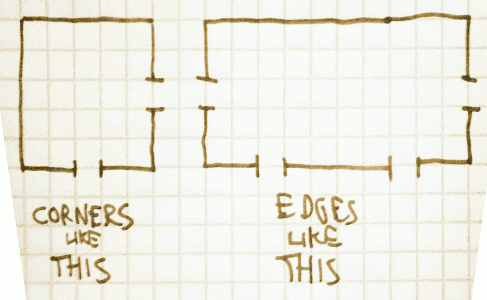 CORNERS
LIKE
THIS
EDGES
LIKE
THIS